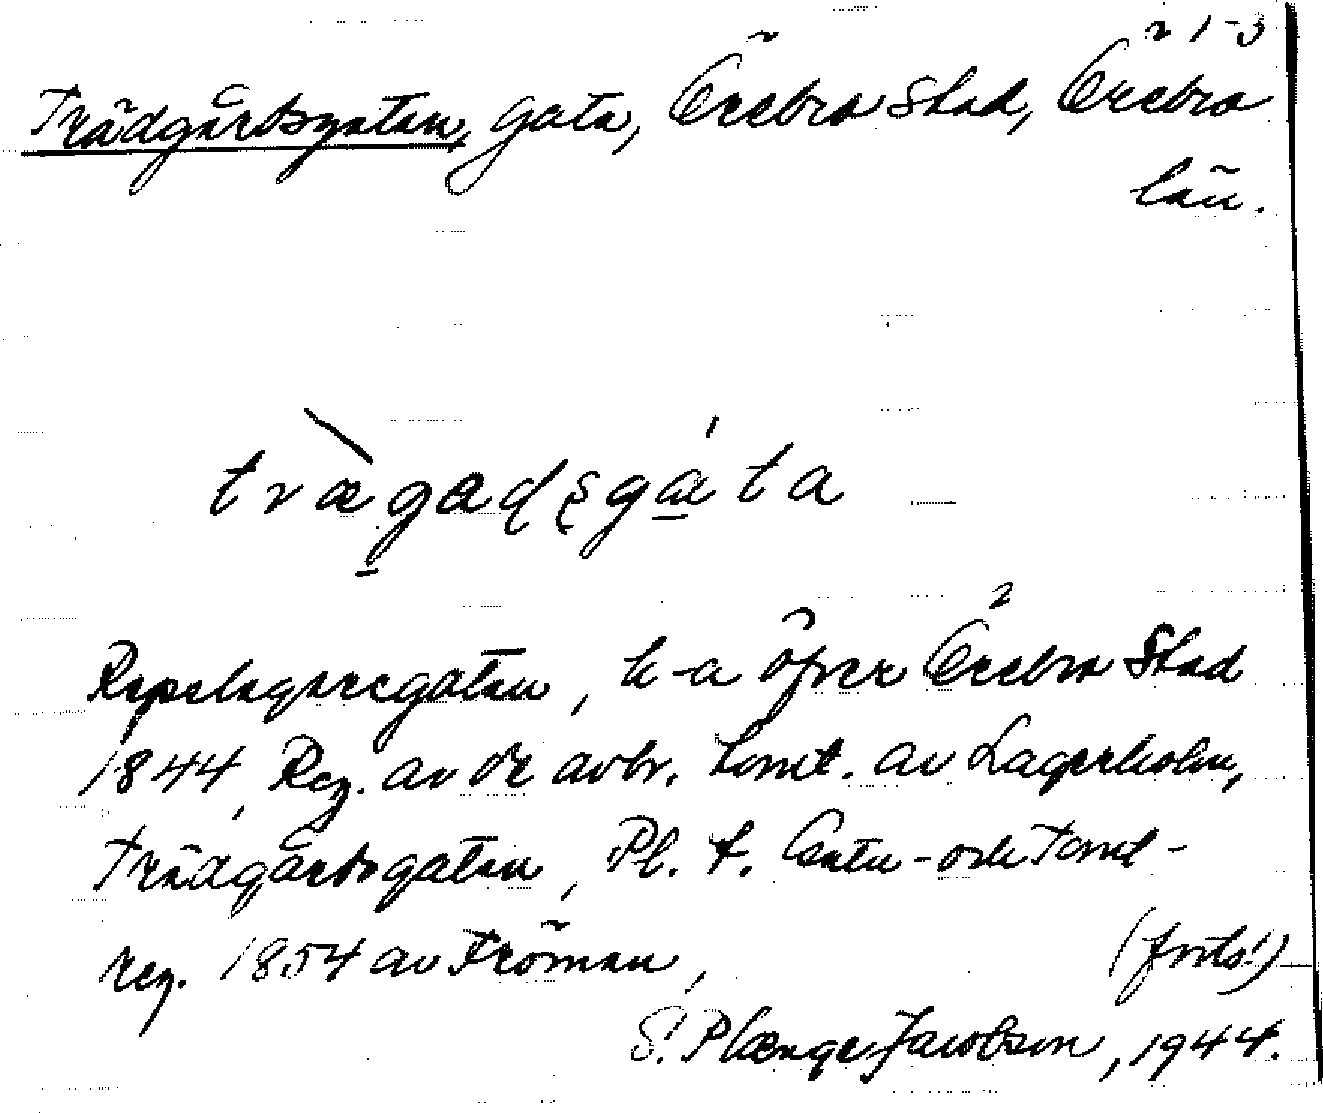 1-3
Trädgårdsgatan, gata, Örebro stad, Örebro
län.
trægadsgata
Repslagaregatan, k-a öfver Örebro Stad
1844, Reg. av de avbr. tomt. av Lagerholm,
Trädgårdsgatan, Pl. t. Centr- och Tomt-
reg. 1854 av Fröman,
(forts!)
S. Plænge Jacobson, 1944.